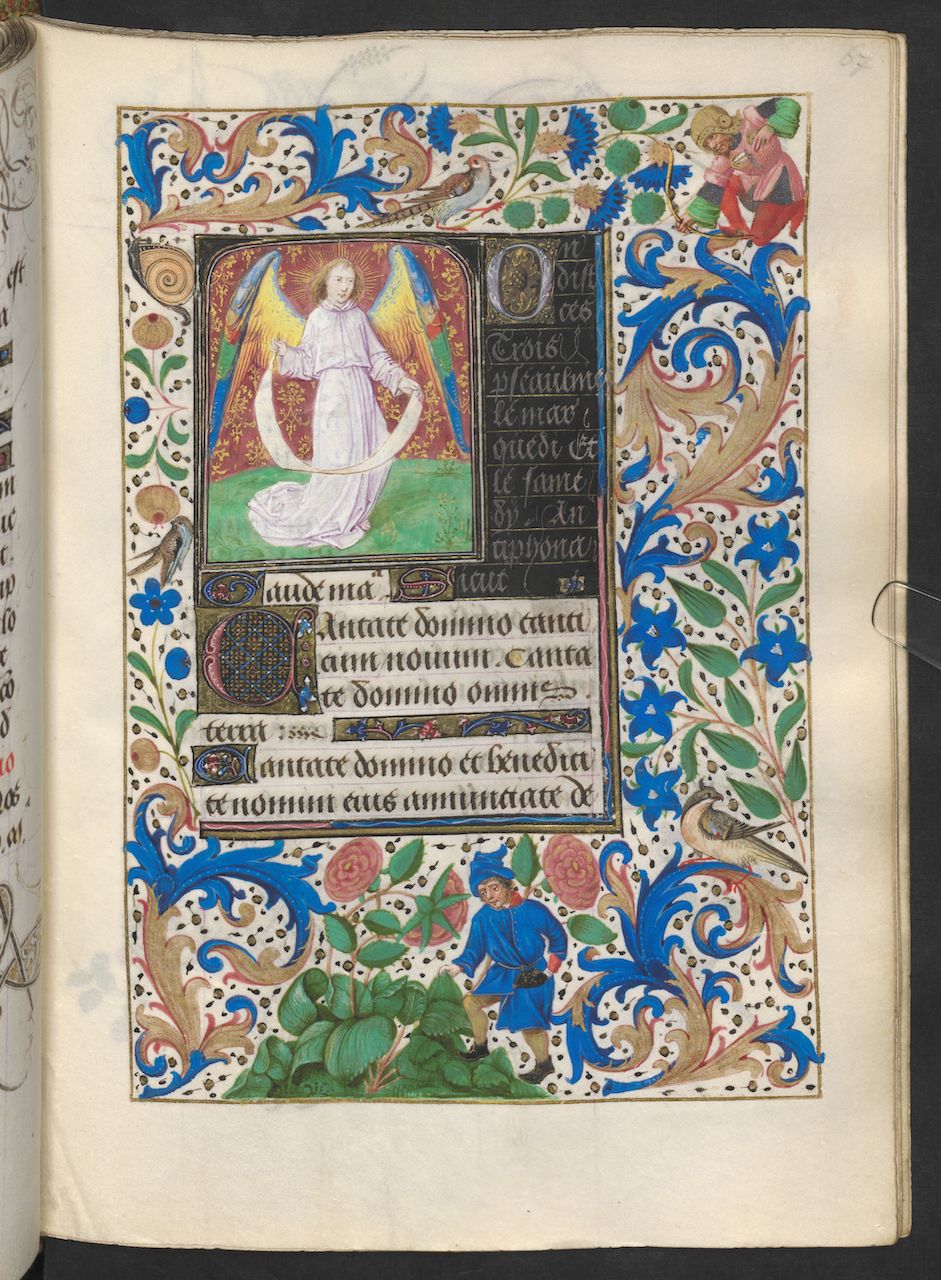 67
On
dist
ces
Trois
pseaulmes
le mar
quedi Et
le same
dy. An
tiphona
Gaude ma^a Sicut
Cantate domino canti
cum novum. Canta
te domino omnis
terra
Cantate domino et benedici
te nomini eius annunciate de